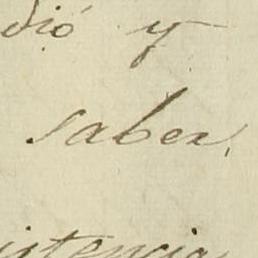 dió y
saber,
istencia